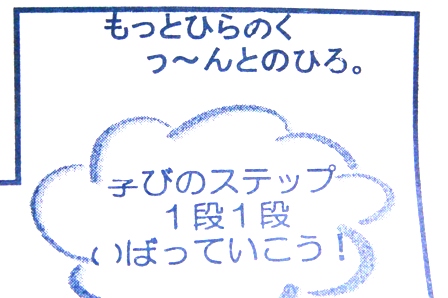 もっとひらのく
っ～んとのひろ。
学びのステップ
1段1段
いばっていこう!